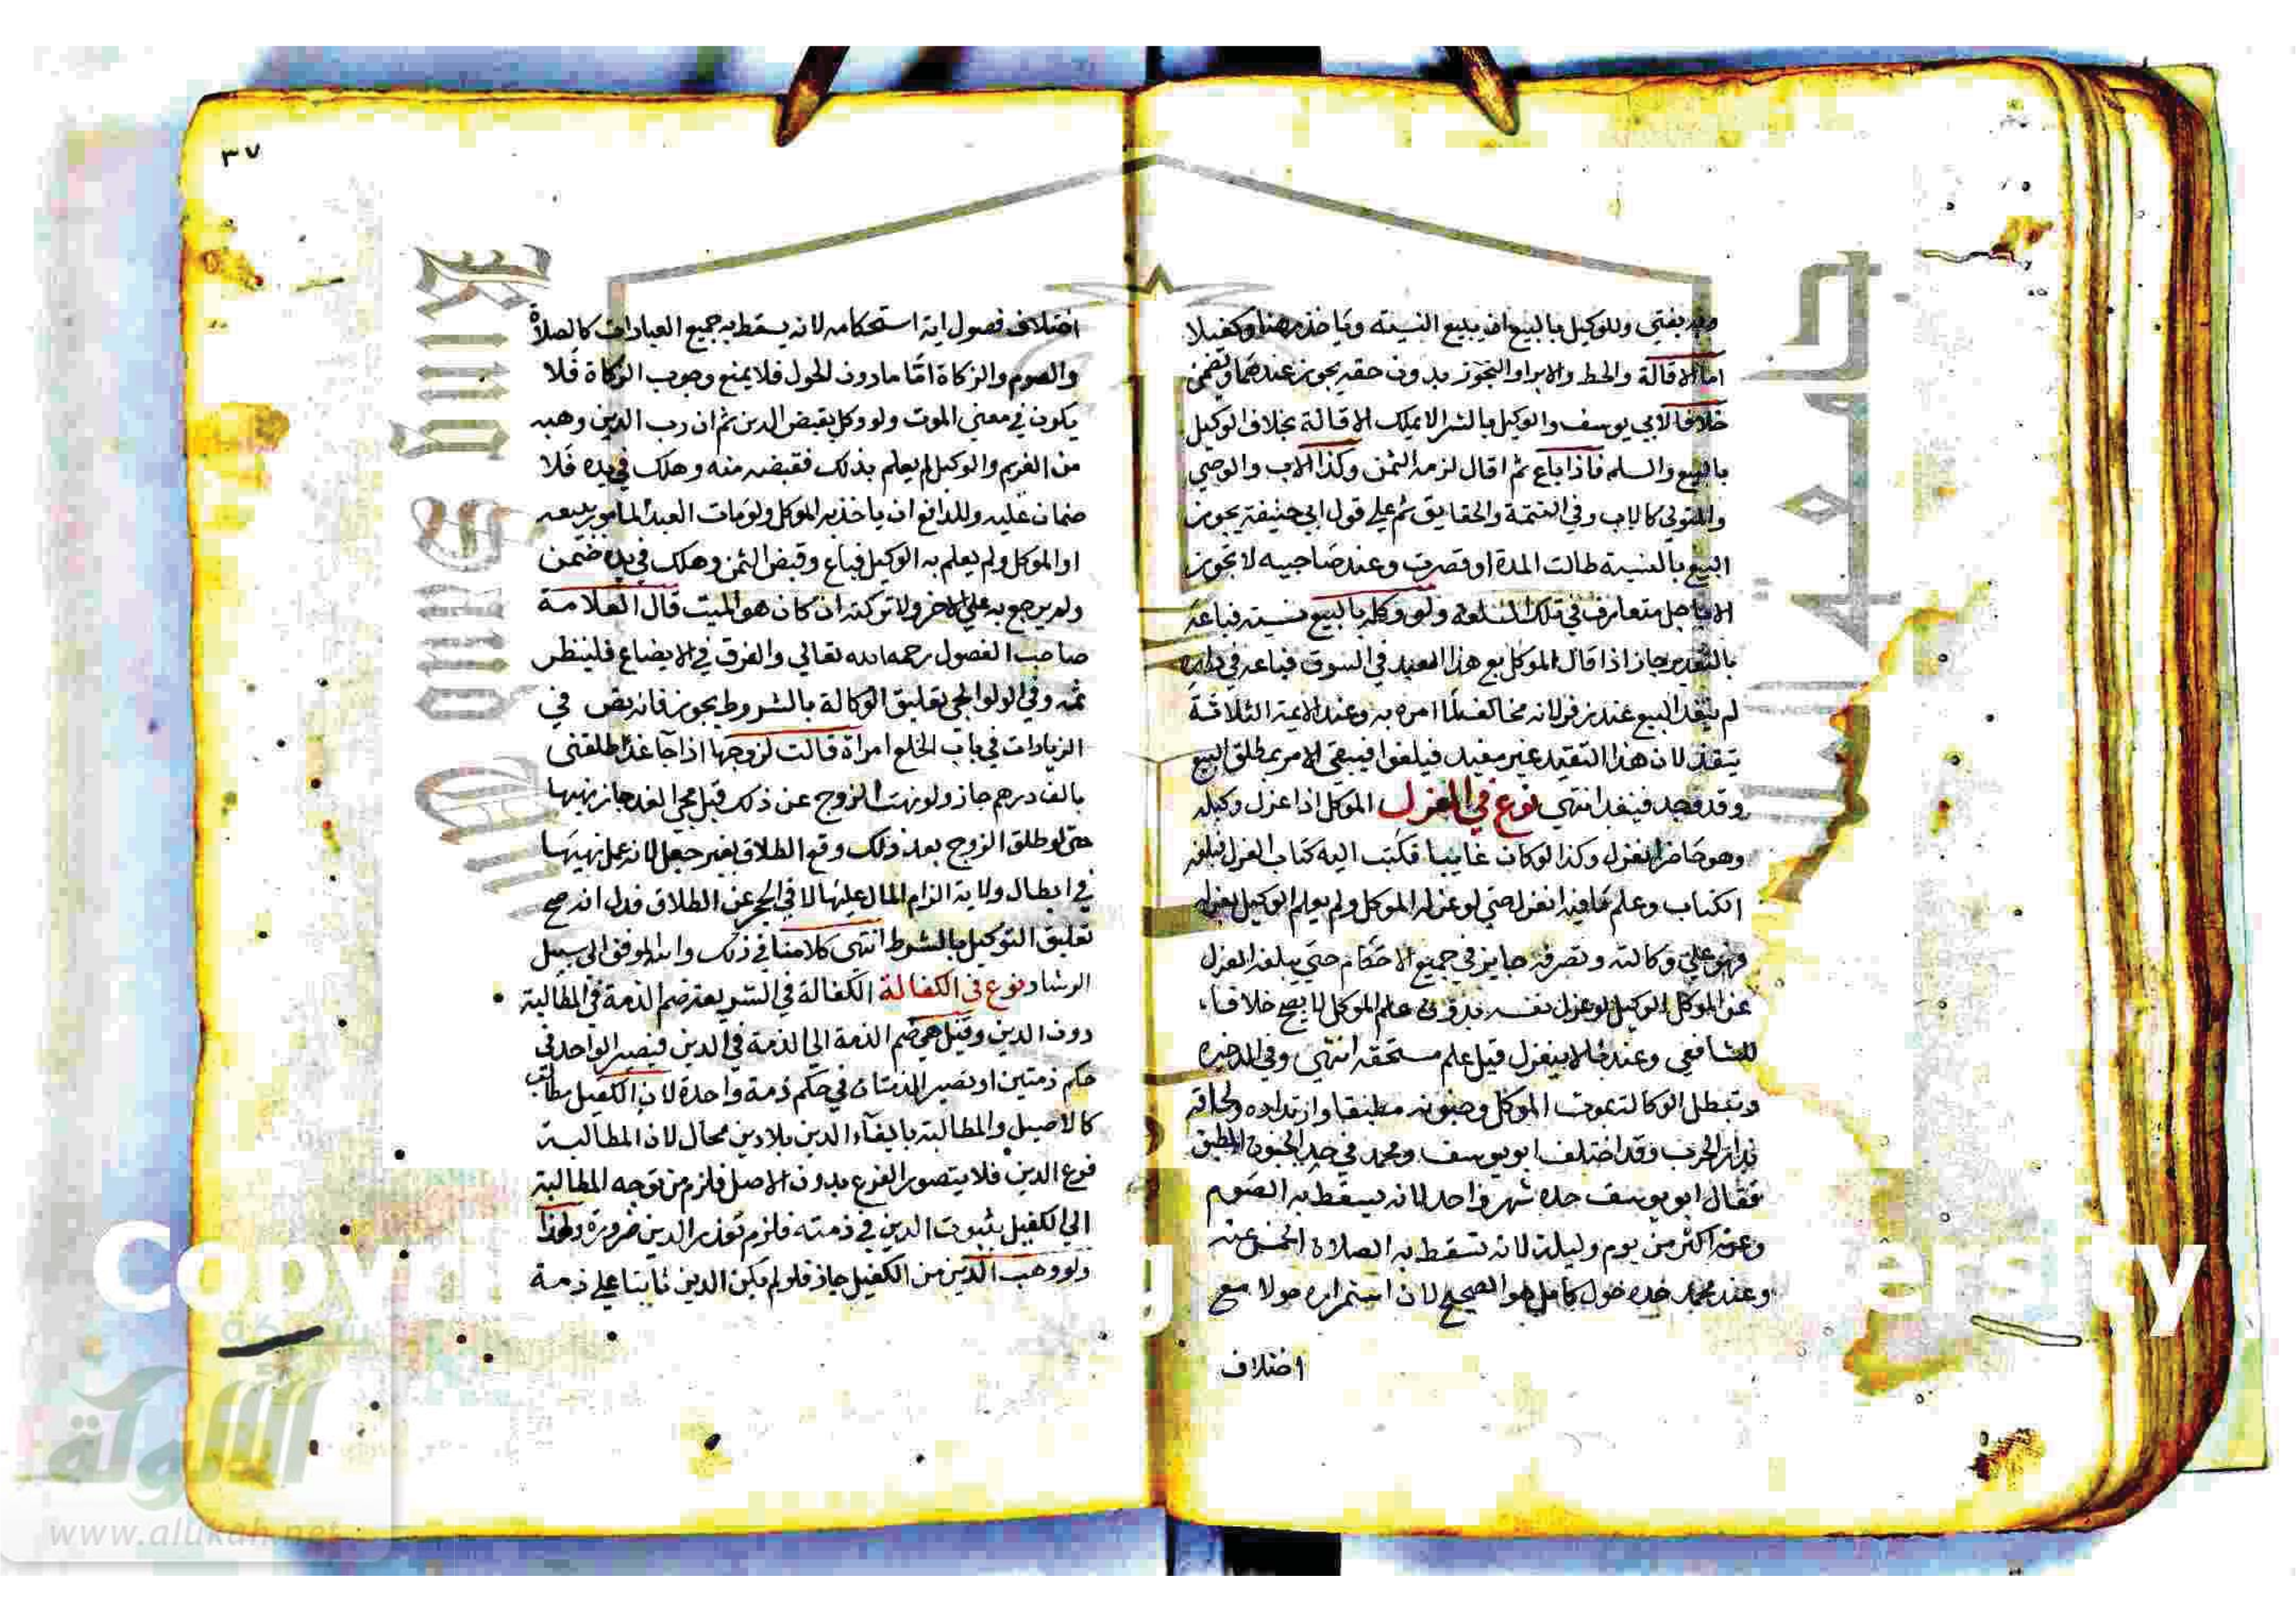 وبه يفتي وللوكيل بالبيع ان يبيع النسيته وياخذ رهنا وكفيلا
اما الاقالة والحط والابرا والتجوز بدون حقه يجوز عندهما ويضمن
خلافا لابي يوسف والوكيل بالشرا لا يملك الاقالة بخلاف الوكيل
بالبيع والسلم فاذا باع ثم اقال لزمه الثمن وكذا الاب والوصي
والمتولي كالاب وفي التتمة والحقايق ثم علي قول ابي حنيفة يجوز
البيع بالنسيه طالت المدة او قصرت وعند صاحبيه لا يجوز
الا باجل متعارف في تلك السلعه ولو وكله بالبيع نسيته فباعه
بالنقد يجاز اذا قال الموكل بع هذا العبد في السوق فباعه في داره
لم ينفد البيع عند زفر لانه مخالف لما امره به وعند الايمة الثلاثة
ينفذ لان هذا التقيد غير مفيد فيلغوا فيبقي الامر بمطلق البيع
وقد وجد فينفد انتهي نوع في العزل الموكل اذا عزل وكيله
وهو حاضر انعزل وكذا لو كان غايبا فكتب اليه كتاب العزل فبلغه
الكتاب وعلم مافيه انعزل حتي لو عزله الموكل ولم يعلم الوكيل بعزله
فهو علي وكالته وتصرفه جايز في جميع الاحكام حتي يبلغه العزل
عن الموكل الوكيل لو عزل نفسه بدون علم الموكل لا يصح خلافا
للشافعي وعندنا لا ينعزل قبل علم مستحقه انتهي وفي الدخيره
وتبطل الوكالة بموت الموكل وجنونه مطبقا وارتداده ولحاقه
بدار الحرب وقد اختلف ابو يوسف ومحمد في حد الجنون المطبق
فقال ابو يوسف حده شهر واحد لانه يسقط به الصوم
وعنه اكثر من يوم وليلة لانه تسقط به الصلاة الخمس عنه
وعند محمد حده حول كامل هو الصحيح لان استمراره حولا مع
اختلاف
٣٧
اختلاف فصول اية استحكامه لانه يسقط به جميع العبادات كالصلاة
والصوم والزكاة امّا مادون الحول فلا يمنع وجوب الزكاة فلا
يكون في معني الموت ولو وكل بقبض الدين ثم ان رب الدين وهبه
من الغريم والوكيل لم يعلم بذلك فقبضه منه وهلك في يده فلا
ضمان عليه وللدافع ان ياخذ به الموكل ولو مات العبد المامور ببيعه
او الموكل ولم يعلم به الوكيل فباع وقبض الثمن وهلك في يده ضمن
ولم يرجع به علي الاخر ولا تركته ان كان هو الميت قال العلامة
صاحب الفصول رحمه الله تعالي والفرق في الايضاع فلينظر
ثمه وفي الولوالجي تعليق الوكالة بالشروط يجوز فانه نص في
الزيادات في باب الخلع امراة قالت لزوجها اذا جا غدا طلقني
بالف درهم جاز ولو نهت الزوج عن ذلك قبل مجي الغد جاز نهيها
حتي لو طلق الزوج بعد ذلك وقع الطلاق بغير جعل لانه عمل نهيها
في ابطال ولاية الزام المال عليها لا في الحجر عن الطلاق فدل انه صح
تعليق التوكيل بالشرط انتهى كلامنا في ذلك والله الموفق الي سبيل
الرشاد نوع في الكفالة الكفالة في الشريعة ضم الذمة في المطالبة
دون الدين وقيل هي ضم الذمة الي الذمة في الدين فيصير الواحد في
حكم ذمتين او تصير الذمتان في حكم ذمة واحدة لان الكفيل مطالب
كالاصيل والمطالبة بايفآء الدين بلا دين محال لان المطالبة
فرع الدين فلا يتصور الفرع بدون الاصل فلزم من توجه المطالبة
الي الكفيل بثبوت الدين في ذمته فلزم تعذر الدين ضرورة ولهذا
ولو وهب الدين من الكفيل جاز فلو لم يكن الدين ثابتا علي ذمة
الألوكة
www.alukah.net